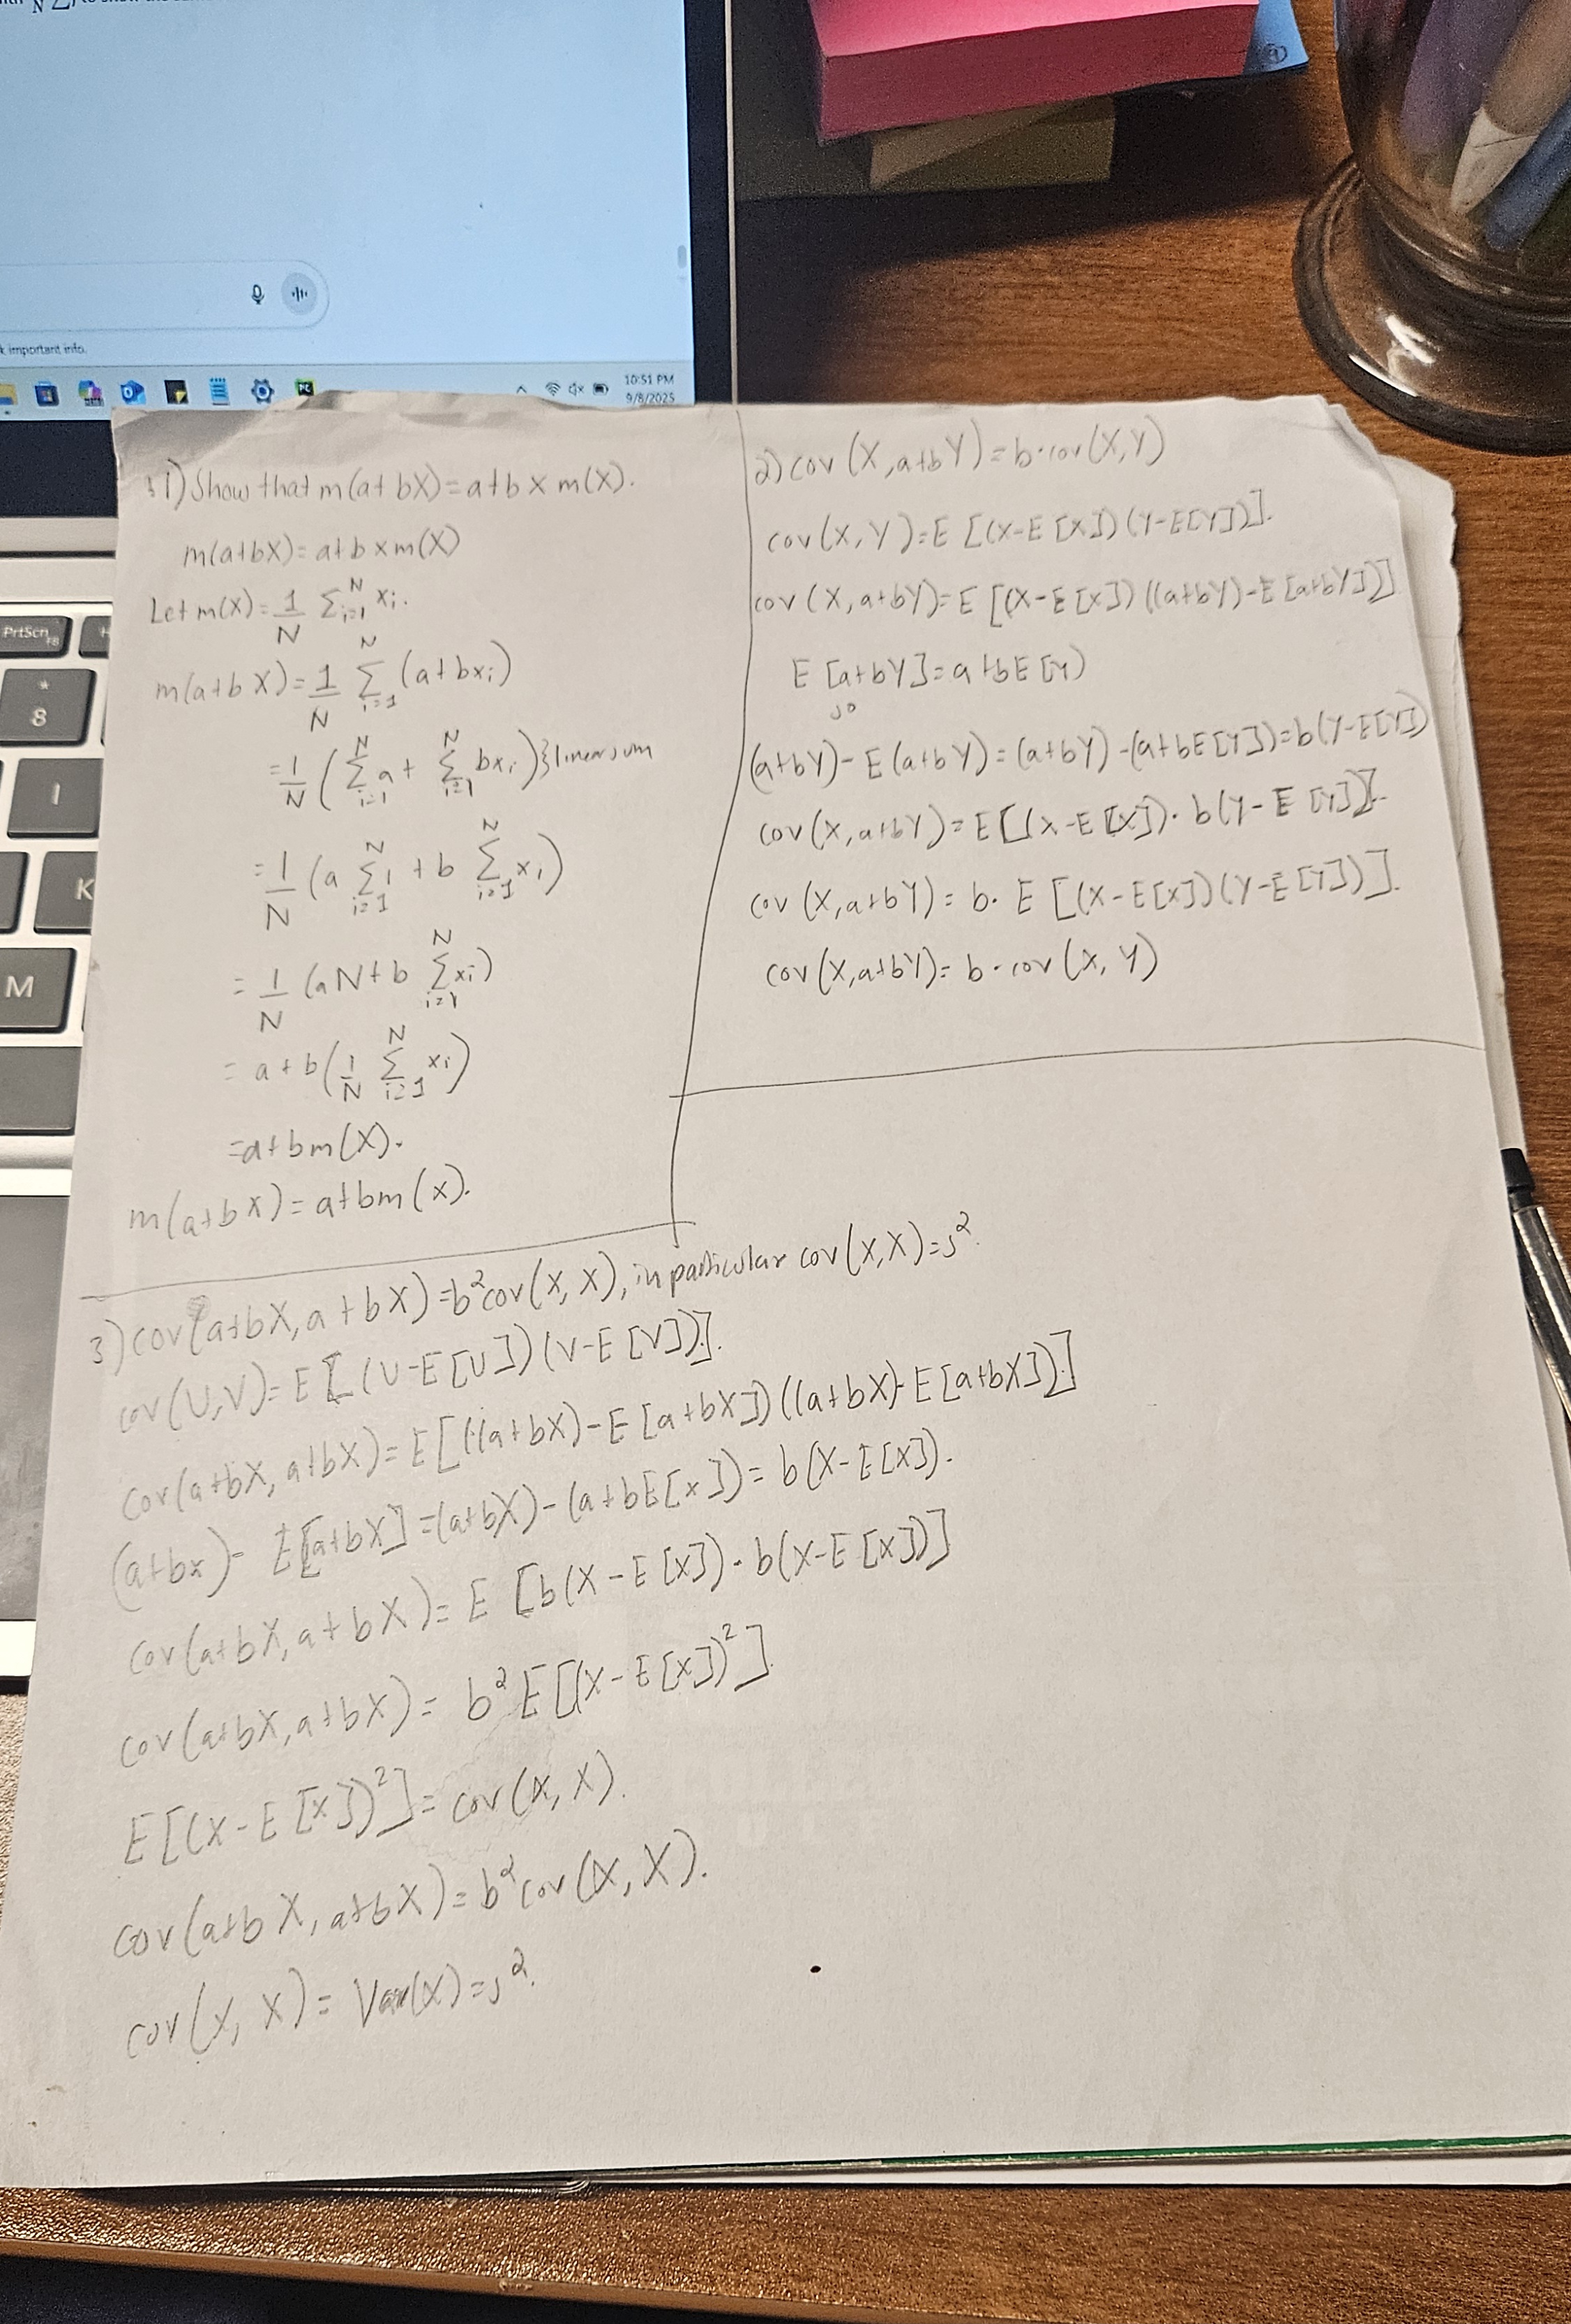 10:51 PM
9/8/2025
k important info.
PrtScn
F8
*
8
I
K
M
1) Show that m(a+bX)=a+b×m(X).
m(a+bX)=a+b×m(X)
Let m(X)=1/N Σ_{i=1}^N x_i.
m(a+bX)=1/N Σ_{i=1}^N (a+bx_i)
=1/N (Σ_{i=1}^N a + Σ_{i=1}^N bx_i) } linear sum
=1/N (a Σ_{i=1}^N 1 + b Σ_{i=1}^N x_i)
=1/N (aN+b Σ_{i=1}^N x_i)
=a+b(1/N Σ_{i=1}^N x_i)
=a+bm(X).
m(a+bX)=a+bm(x).
2) cov(X,a+bY)=b·cov(X,Y)
cov(X,Y)=E[(X-E[X])(Y-E[Y])].
cov(X,a+bY)=E[(X-E[X])((a+bY)-E[a+bY])]
E[a+bY]=a+bE[Y]
so
(a+bY)-E(a+bY)=(a+bY)-(a+bE[Y])=b(Y-E[Y])
cov(X,a+bY)=E[(X-E[X])·b(Y-E[Y])].
cov(X,a+bY)=b·E[(X-E[X])(Y-E[Y])].
cov(X,a+bY)=b·cov(X,Y)
3) cov(a+bX,a+bX)=b²cov(X,X), in particular cov(X,X)=s².
cov(U,V)=E[(U-E[U])(V-E[V])].
cov(a+bX,a+bX)=E[((a+bX)-E[a+bX])((a+bX)-E[a+bX])]
(a+bx)-E[a+bX]=(a+bX)-(a+bE[x])=b(X-E[X]).
cov(a+bX,a+bX)=E[b(X-E[X])·b(X-E[X])]
cov(a+bX,a+bX)=b²E[(X-E[X])²].
E[(X-E[X])²]=cov(X,X).
cov(a+bX,a+bX)=b²cov(X,X).
cov(X,X)=Var(X)=s².